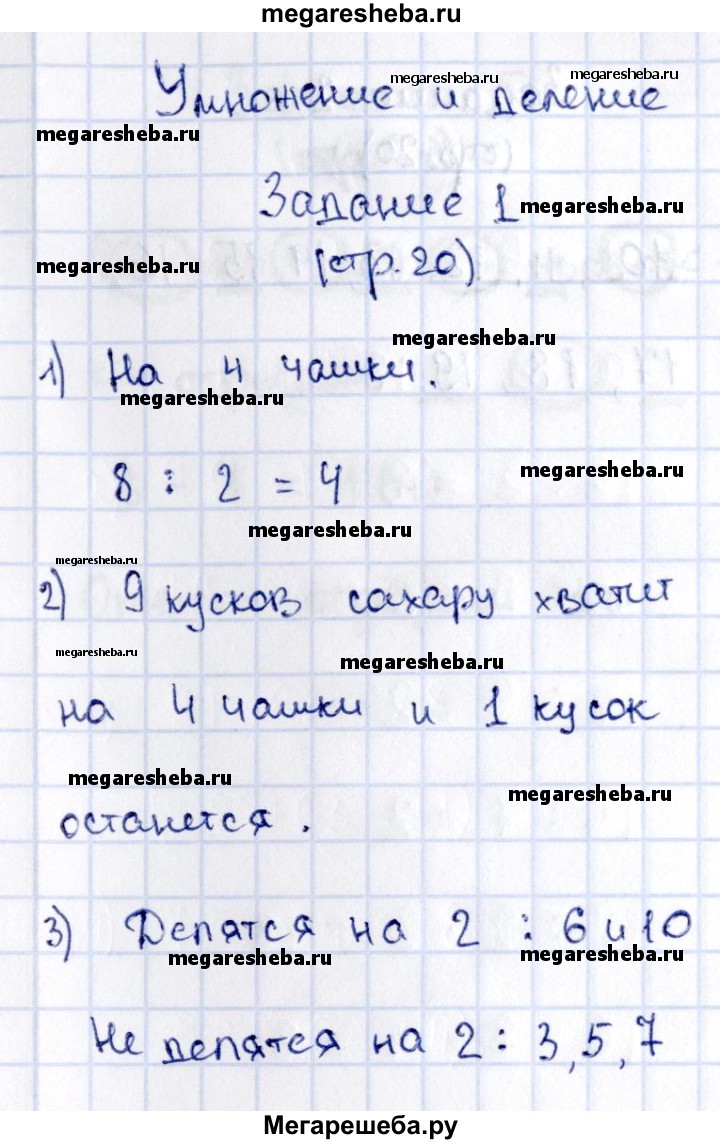 megaresheba.ru
megaresheba.ru
megaresheba.ru
Умножение и деление
megaresheba.ru
Задание 1
megaresheba.ru
megaresheba.ru
(стр. 20)
megaresheba.ru
1) На 4 чашки.
megaresheba.ru
8 : 2 = 4
megaresheba.ru
megaresheba.ru
megaresheba.ru
2) 9 кусков сахару хватит
megaresheba.ru
megaresheba.ru
на 4 чашки и 1 кусок
megaresheba.ru
megaresheba.ru
останется.
3) Делятся на 2 : 6 и 10
megaresheba.ru
megaresheba.ru
Не делятся на 2 : 3, 5, 7
Мегарешеба.ру